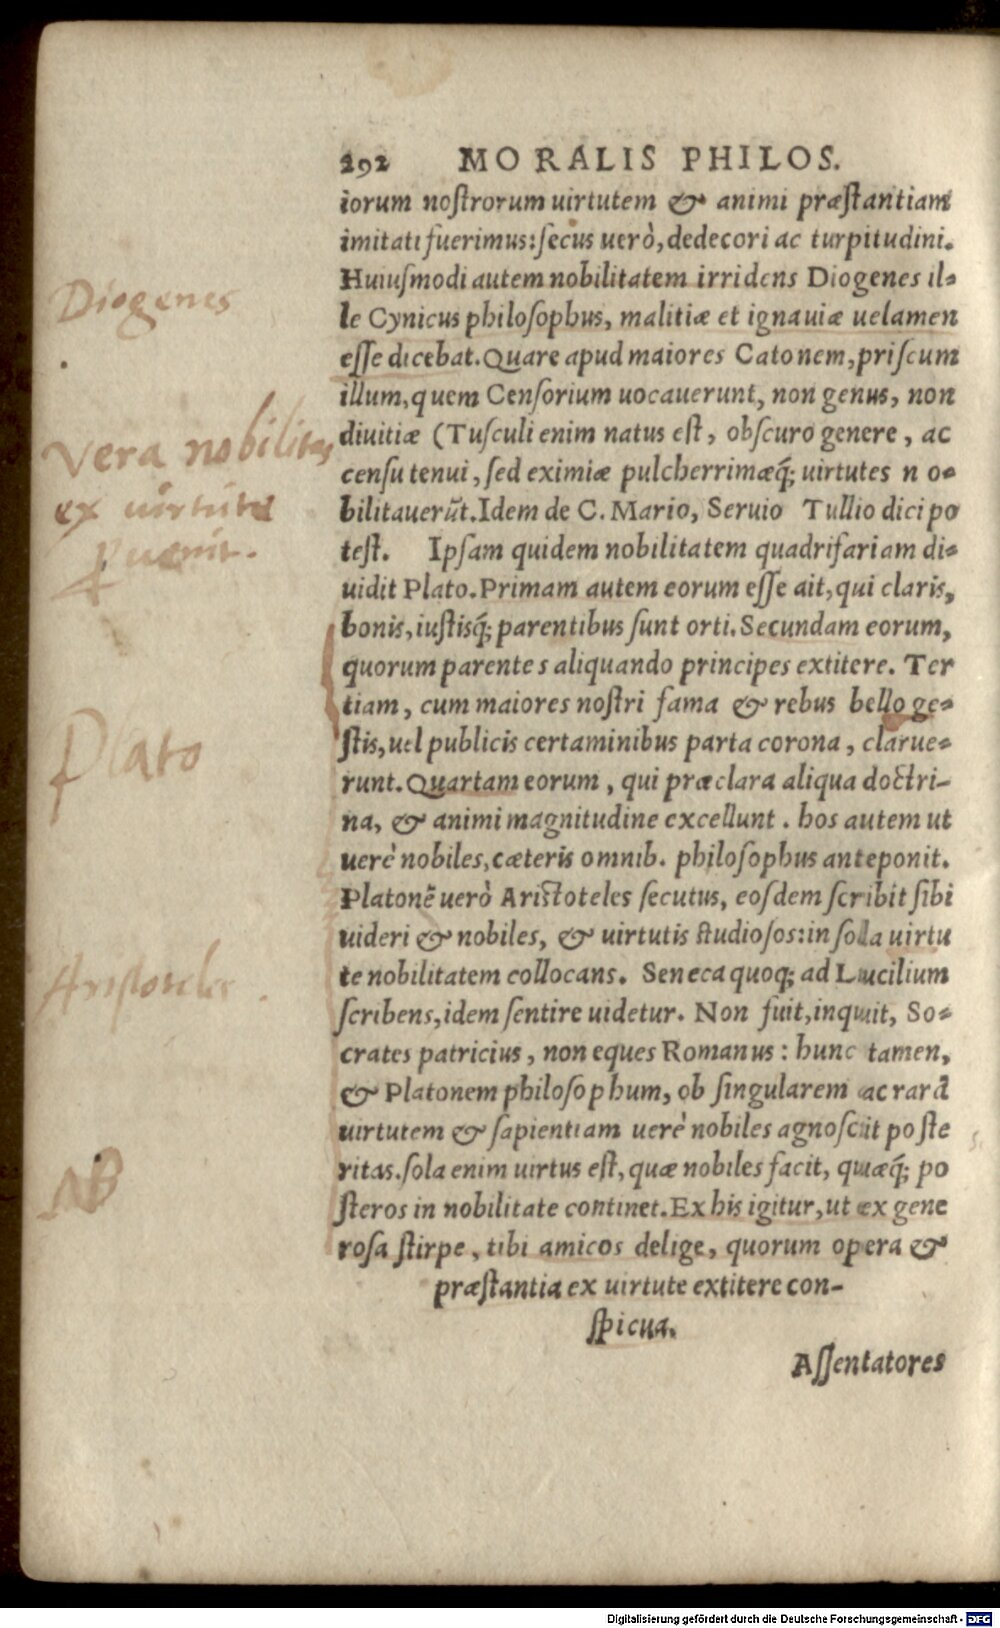 292 MORALIS PHILOS.
iorum nostrorum uirtutem & animi præstantiam
imitati fuerimus: secus uerò, dedecori ac turpitudini.
Huiusmodi autem nobilitatem irridens Diogenes il-
le Cynicus philosophus, malitiæ et ignauiæ uelamen
esse dicebat. Quare apud maiores Catonem, priscum
illum, quem Censorium uocauerunt, non genus, non
diuitiæ (Tusculi enim natus est, obscuro genere, ac
censu tenui, sed eximiæ pulcherrimæq́; uirtutes no-
bilitauerūt. Idem de C. Mario, Seruio Tullio dici po
test. Ipsam quidem nobilitatem quadrifariam di-
uidit Plato. Primam autem eorum esse ait, qui claris,
bonis, iustisq́; parentibus sunt orti. Secundam eorum,
quorum parentes aliquando principes extitere. Ter
tiam, cum maiores nostri fama & rebus bello ge-
stis, uel publicis certaminibus parta corona, clarue-
runt. Quartam eorum, qui præclara aliqua doctri-
na, & animi magnitudine excellunt. hos autem ut
uerè nobiles, cæteris omnib. philosophus anteponit.
Platonē uerò Aristoteles secutus, eosdem scribit sibi
uideri & nobiles, & uirtutis studiosos: in sola uirtu
te nobilitatem collocans. Seneca quoq; ad Lucilium
scribens, idem sentire uidetur. Non fuit, inquit, So-
crates patricius, non eques Romanus: hunc tamen,
& Platonem philosophum, ob singularem ac rarā
uirtutem & sapientiam uerè nobiles agnoscit poste
ritas. sola enim uirtus est, quæ nobiles facit, quæq́; po
steros in nobilitate continet. Ex his igitur, ut ex gene
rosa stirpe, tibi amicos delige, quorum opera &
præstantia ex uirtute extitere con-
spicua.
Assentatores
Diogenes
Vera nobilitas
ex uirtute
Plato
Aristoteles
NB
Digitalisierung gefördert durch die Deutsche Forschungsgemeinschaft - DFG